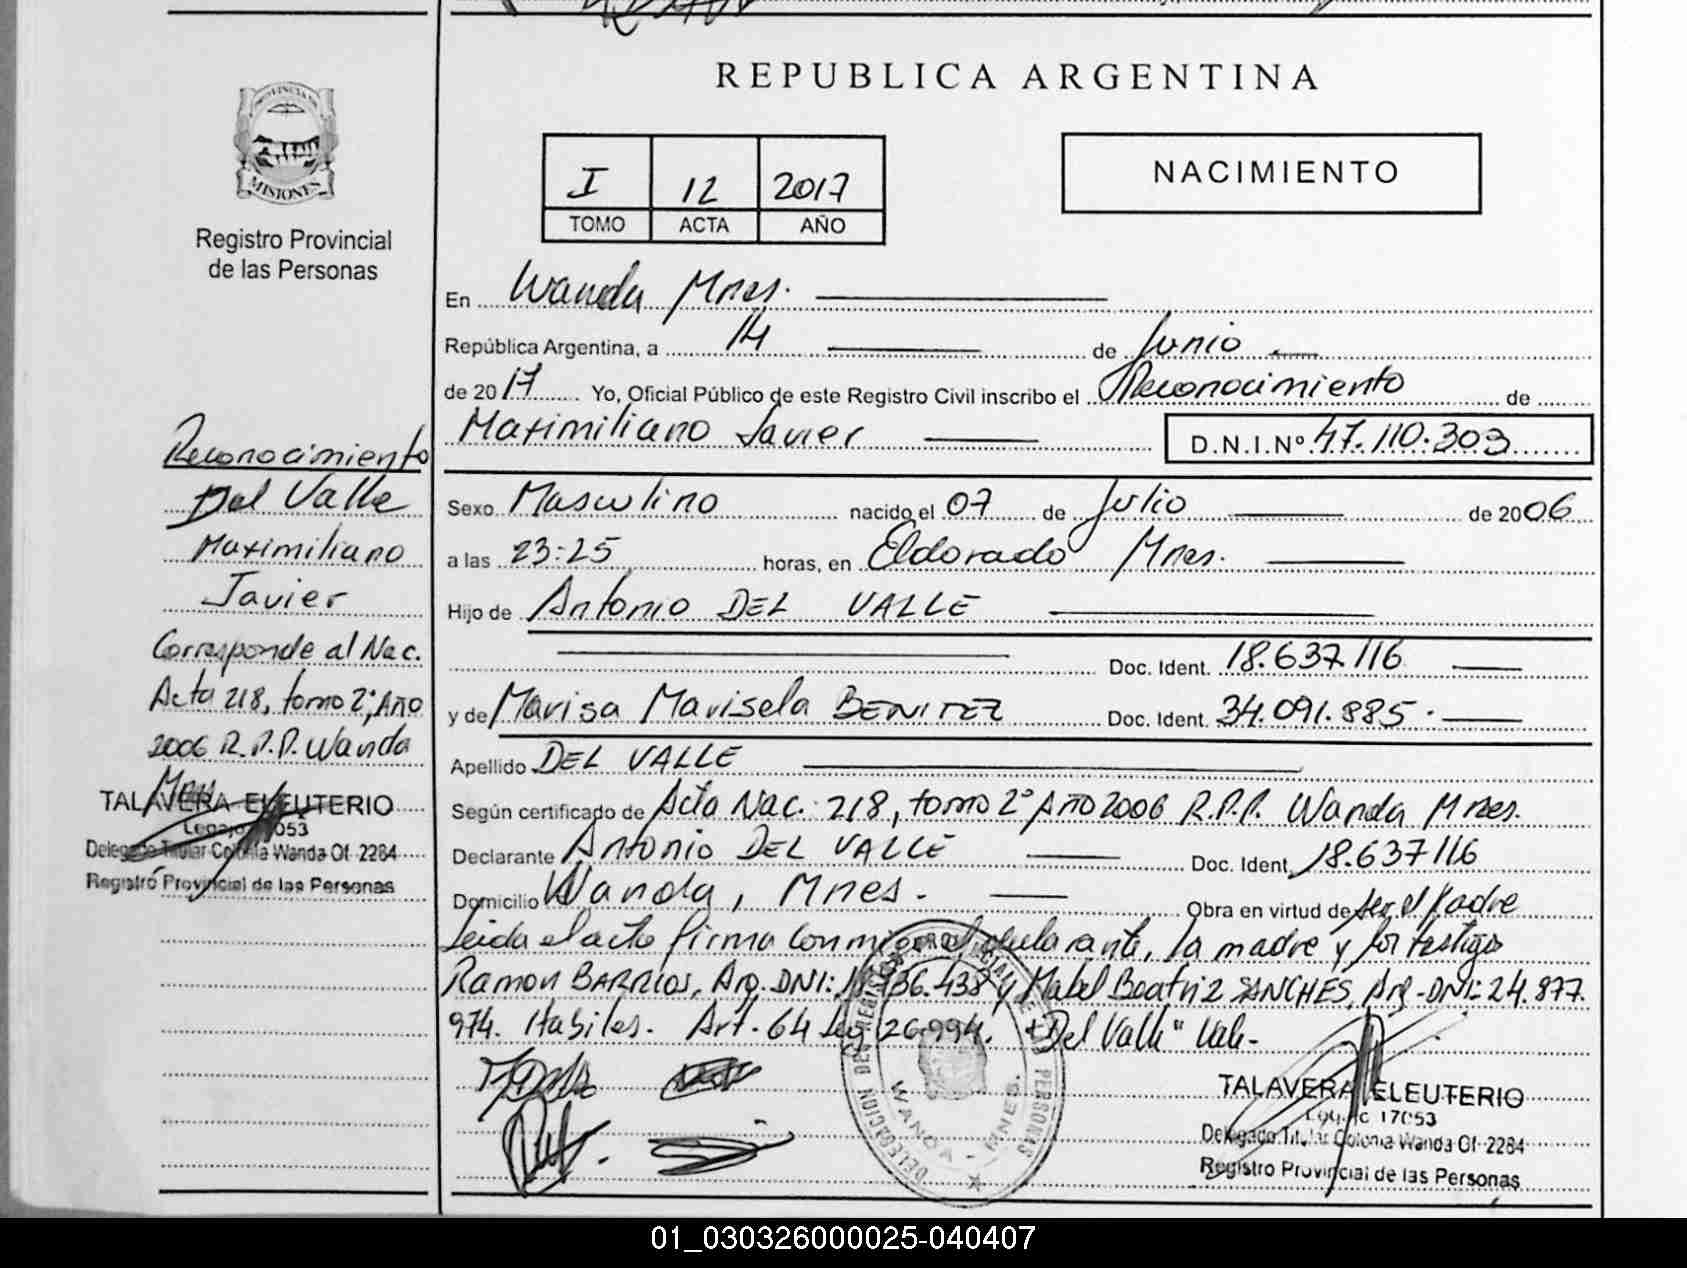 PROVINCIA DE
MISIONES
Registro Provincial
de las Personas
Reconocimiento
Del Valle
Maximiliano
Javier
Corresponde al Nac.
Acta 218, tomo 2º, Año
2006 R.P.P. Wanda
Mnes
TALAVERA ELEUTERIO
Legajo 17053
Delegado Titular Colonia Wanda Of. 2284
Registro Provincial de las Personas
REPUBLICA ARGENTINA
I 12 2017
TOMO ACTA AÑO
NACIMIENTO
En Wanda Mnes.
República Argentina, a 14 de Junio
de 2017 Yo, Oficial Público de este Registro Civil inscribo el Reconocimiento de
Maximiliano Javier D.N.I.Nº 47.110.303
Sexo Masculino nacido el 07 de Julio de 2006
a las 23:25 horas, en Eldorado Mnes.
Hijo de Antonio DEL VALLE
Doc. Ident. 18.637.116
y de Marisa Marisela BENITEZ Doc. Ident. 34.091.885.
Apellido DEL VALLE
Según certificado de Acta Nac. 218, tomo 2º Año 2006 R.P.P. Wanda Mnes.
Declarante Antonio DEL VALLE Doc. Ident. 18.637116
Domicilio Wanda, Mnes. Obra en virtud de ser el Padre
Leida el acto firma conmigo el declarante, la madre y por testigos
Ramon BARRIOS, Arg. DNI: 36.438 y Mabel Beatriz SANCHES, Arg - DNI: 24.877.
974. Habiles. Art. 64 Ley 26.994. "Del Valle" Vale-
DELEGACION DEL REGISTRO PROVINCIAL DE LAS PERSONAS
WANDA - MNES.
TALAVERA ELEUTERIO
Legajo 17053
Delegado Titular Colonia Wanda Of. 2284
Registro Provincial de las Personas
01_030326000025-040407